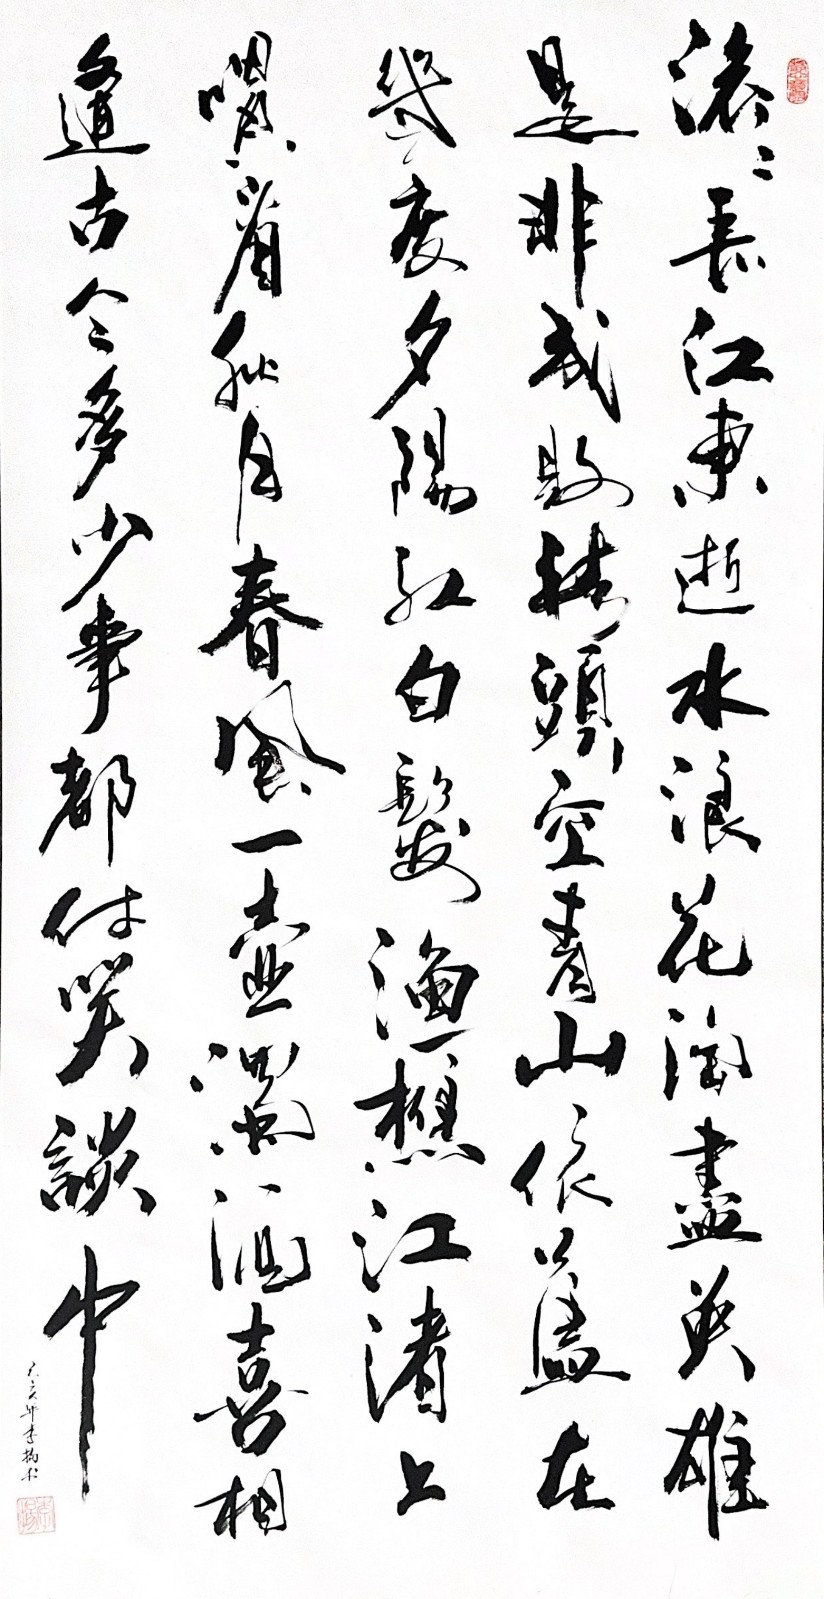 滚々長江東逝水浪花淘盡英雄
是非成敗轉頭空青山依舊在
幾度夕陽紅白髮漁樵江渚上
慣看秋月春風一壺濁酒喜相
逢古今多少事都付笑談中
己亥年李